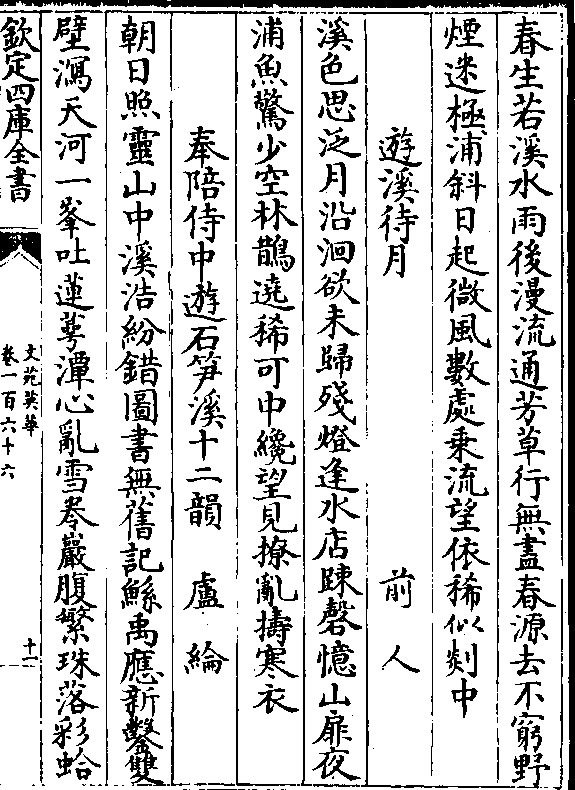 春生若溪水雨後漫流通芳草行無盡春源去不窮野
煙迷極浦斜日起微風數處乗流望依稀似剡中
遊溪待月　前人
溪色思泛月沿洄欲未歸殘燈逢水店疎磬憶山扉夜
浦魚驚少空林鵲遶稀可中纔望見撩亂擣寒衣
奉陪侍中遊石笋溪十二韻　盧綸
朝日照靈山中溪浩紛錯圖書無舊記鯀禹應新鑿雙
壁瀉天河一峯吐蓮萼潭心亂雪卷巖腹繁珠落彩蛤
欽定四庫全書
文苑英華
卷一百六十六
十一